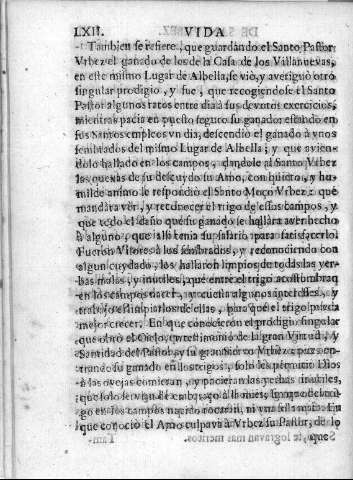 LXII. VIDA
Tambien se refiere, que guardando el Santo Pastor
Vrbez el ganado de los de la Casa de los Villanuevas,
en este mismo Lugar de Albella, se viò, y averiguò otro
singular prodigio, y fue, que recogiendose el Santo
Pastor algunos ratos entre dia à sus devotos exercicios,
mientras pacia en puesto seguro su ganado: estando en
sus Santos empleos vn dia, descendiò el ganado à vnos
sembrados del mismo Lugar de Albella; y que avien-
dolo hallado en los campos, dandole al Santo Vrbez
las quexas de su descuydo su Amo, con quieto, y hu-
milde animo le respondiò el Santo Moço Vrbez: que
mandàra vèr, y reconocer el trigo de essos campos, y
que todo el daño que su ganado se hallàra aver hecho
à alguno, que alli tenia su salario para satisfacerlo.
Fueron Visores à los sembrados, y reconociendo con
algun cuydado, los hallaron limpios de todas las yer-
bas malas, y inutiles, que entre el trigo acostombran
en los campos nacer, y cuesta algunos interesses, y
trabajo el limpiarlos de ellas, para que el trigo pueda
mejor crecer. En que conocieron el prodigio singular
que obrò el Cielo, en testimonio de la gran Virtud, y
Santidad del Pastor, y su gran Siervo Vrbez: pues en-
trando su ganado en los trigos, solo les permitiò Dios
à las ovejas comieran, y pacieran las yerbas inutiles,
que solo servian de embaraço à las mieses,
go en los campos nacido tocaran, ni vna sola mata. En
que conociò el Amo culpava à Vrbez su Pastor, de lo
que,